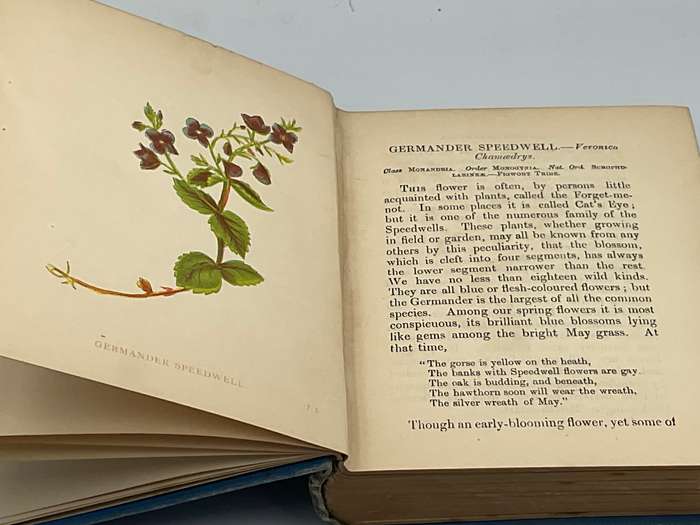 GERMANDER SPEEDWELL.
GERMANDER SPEEDWELL.—Veronica
Chamædrys.
Class MONANDRIA. Order MONOGYNIA. Nat. Ord. SCROPHU-
LARINEÆ.—FIGWORT TRIBE.
THIS flower is often, by persons little
acquainted with plants, called the Forget-me-
not. In some places it is called Cat's Eye;
but it is one of the numerous family of the
Speedwells. These plants, whether growing
in field or garden, may all be known from any
others by this peculiarity, that the blossom,
which is cleft into four segments, has always
the lower segment narrower than the rest.
We have no less than eighteen wild kinds.
They are all blue or flesh-coloured flowers; but
the Germander is the largest of all the common
species. Among our spring flowers it is most
conspicuous, its brilliant blue blossoms lying
like gems among the bright May grass. At
that time,
"The gorse is yellow on the heath,
The banks with Speedwell flowers are gay.
The oak is budding, and beneath,
The hawthorn soon will wear the wreath,
The silver wreath of May."
Though an early-blooming flower, yet some of